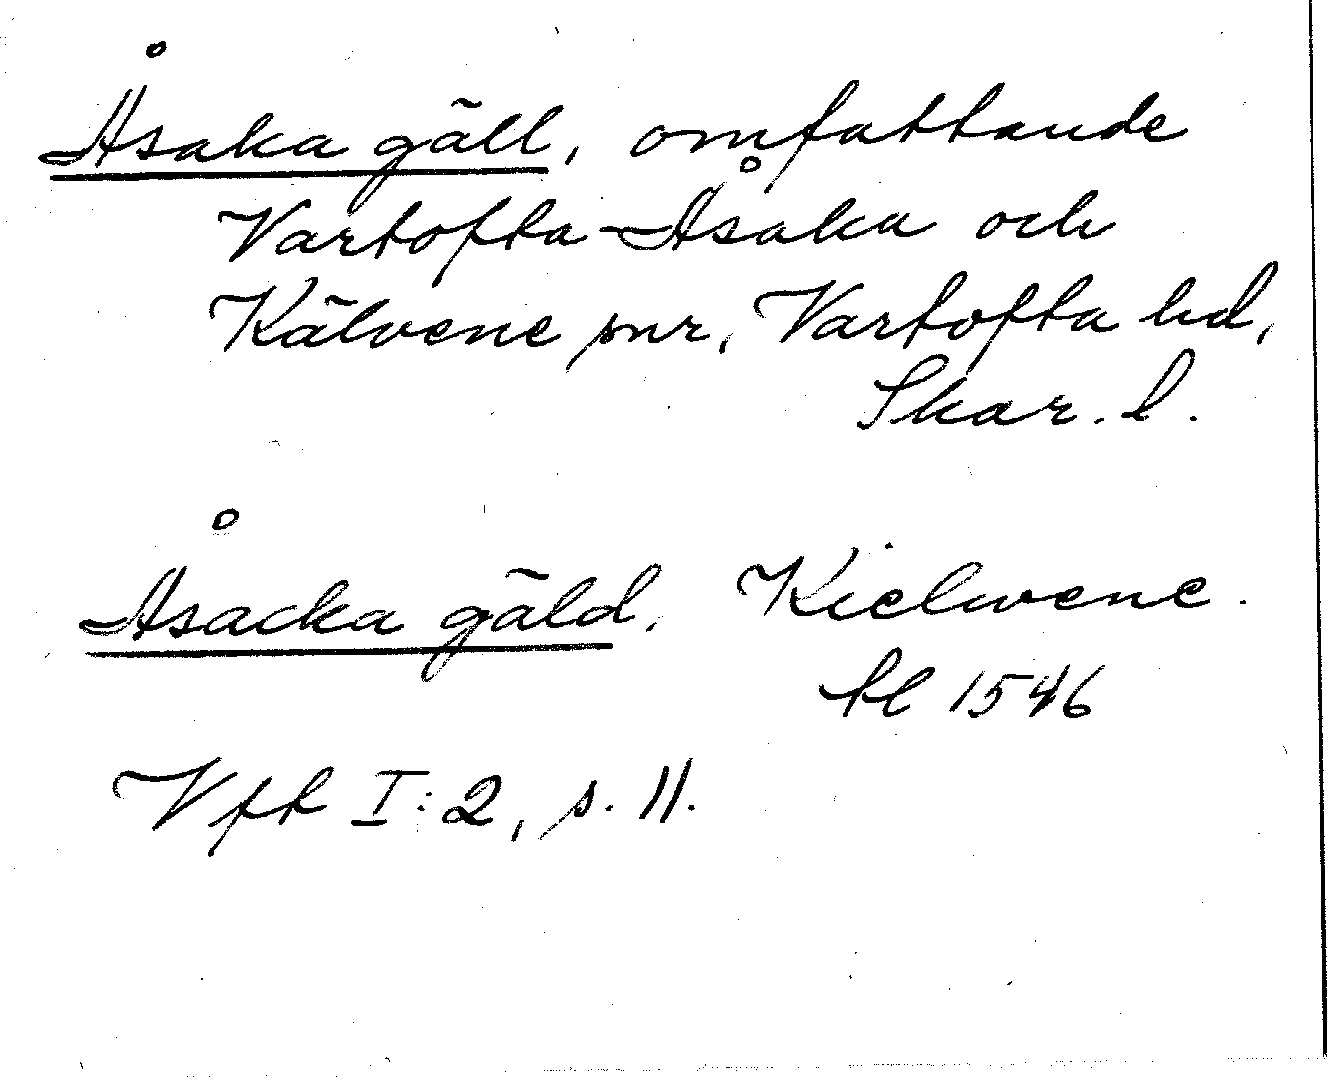 Åsaka gäll, omfattande
Vartofta-Åsaka och
Kälvene snr, Vartofta hd,
Skar. l.
Åsacka gäld. Kielwene.
Sl 1546
Vft I:2, s. 11.